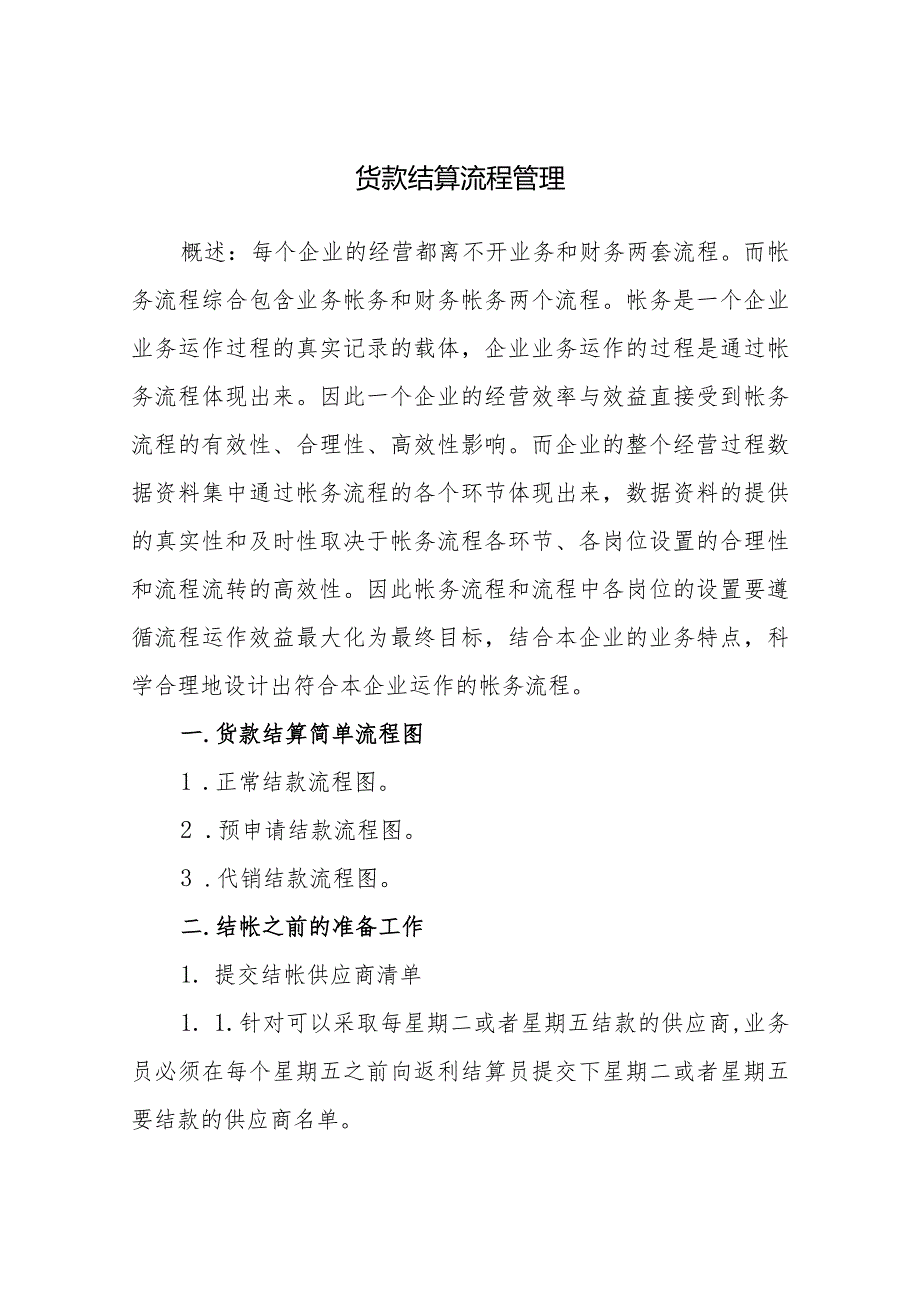 货款结算流程管理
概述：每个企业的经营都离不开业务和财务两套流程。而帐
务流程综合包含业务帐务和财务帐务两个流程。帐务是一个企业
业务运作过程的真实记录的载体，企业业务运作的过程是通过帐
务流程体现出来。因此一个企业的经营效率与效益直接受到帐务
流程的有效性、合理性、高效性影响。而企业的整个经营过程数
据资料集中通过帐务流程的各个环节体现出来，数据资料的提供
的真实性和及时性取决于帐务流程各环节、各岗位设置的合理性
和流程流转的高效性。因此帐务流程和流程中各岗位的设置要遵
循流程运作效益最大化为最终目标，结合本企业的业务特点，科
学合理地设计出符合本企业运作的帐务流程。
一.货款结算简单流程图
1 .正常结款流程图。
2 .预申请结款流程图。
3 .代销结款流程图。
二.结帐之前的准备工作
1. 提交结帐供应商清单
1. 1.针对可以采取每星期二或者星期五结款的供应商,业务
员必须在每个星期五之前向返利结算员提交下星期二或者星期五
要结款的供应商名单。